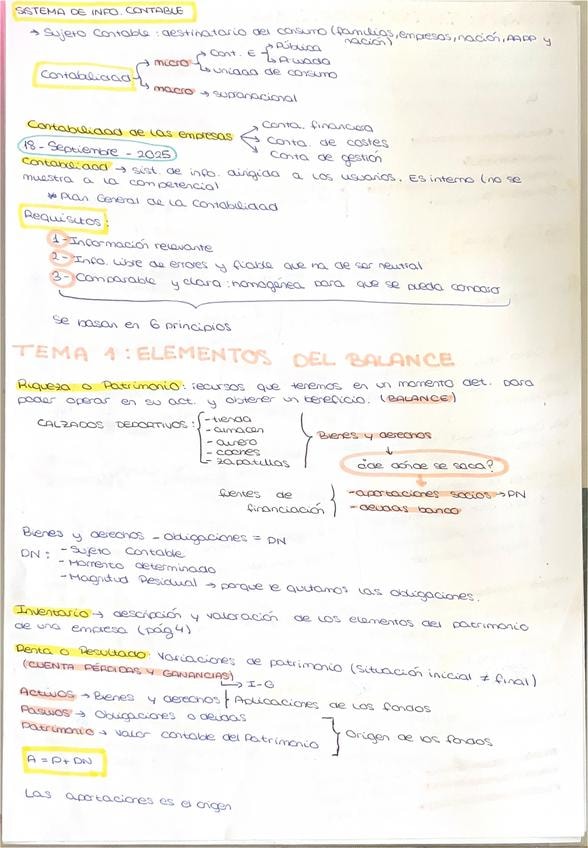 SISTEMA DE INFO. CONTABLE
→ Sujeto Contable: destinatario del consumo (familias, empresas, nación, AAPP y nación)
Contabilidad
micro
→ Cont. E
Pública
Privada
→ unidad de consumo
macro → supranacional
Contabilidad de las empresas
Conta. financiera
Conta. de costes
Conta de gestión
18 - Septiembre - 2025
Contabilidad → sist. de info. dirigida a los usuarios. Es interno (no se
muestra a la competencia)
* Plan General de la Contabilidad
Requisitos:
1- Información relevante
2- Info. libre de errores y fiable que ha de ser neutral
3- Comparable y clara: homogénea para que se pueda conocer
se basan en 6 principios
TEMA 1: ELEMENTOS DEL BALANCE
Riqueza o Patrimonio: recursos que tenemos en un momento det. para
poder operar en su act. y obtener un beneficio. (BALANCE)
CALZADOS DEPORTIVOS:
- tienda
- almacen
- dinero
- coches
- zapatillas
Bienes y derechos
↓
¿de dónde se saca?
↓
fuentes de
financiación
- aportaciones socios → PN
- deudas banco
Bienes y derechos - obligaciones = PN
PN: - Sujeto Contable
- Momento determinado
- Magnitud Residual → porque le quitamos las obligaciones.
Inventario → descripción y valoración de los elementos del patrimonio
de una empresa (pág 4)
Renta o Resultado: Variaciones de patrimonio (situación inicial ≠ final)
(CUENTA PÉRDIDAS Y GANANCIAS)
→ I-G
Activos → Bienes y derechos } Aplicaciones de los fondos
Pasivos → Obligaciones o deudas
Patrimonio → Valor contable del Patrimonio
Origen de los fondos
A = P + PN
Las aportaciones es el origen